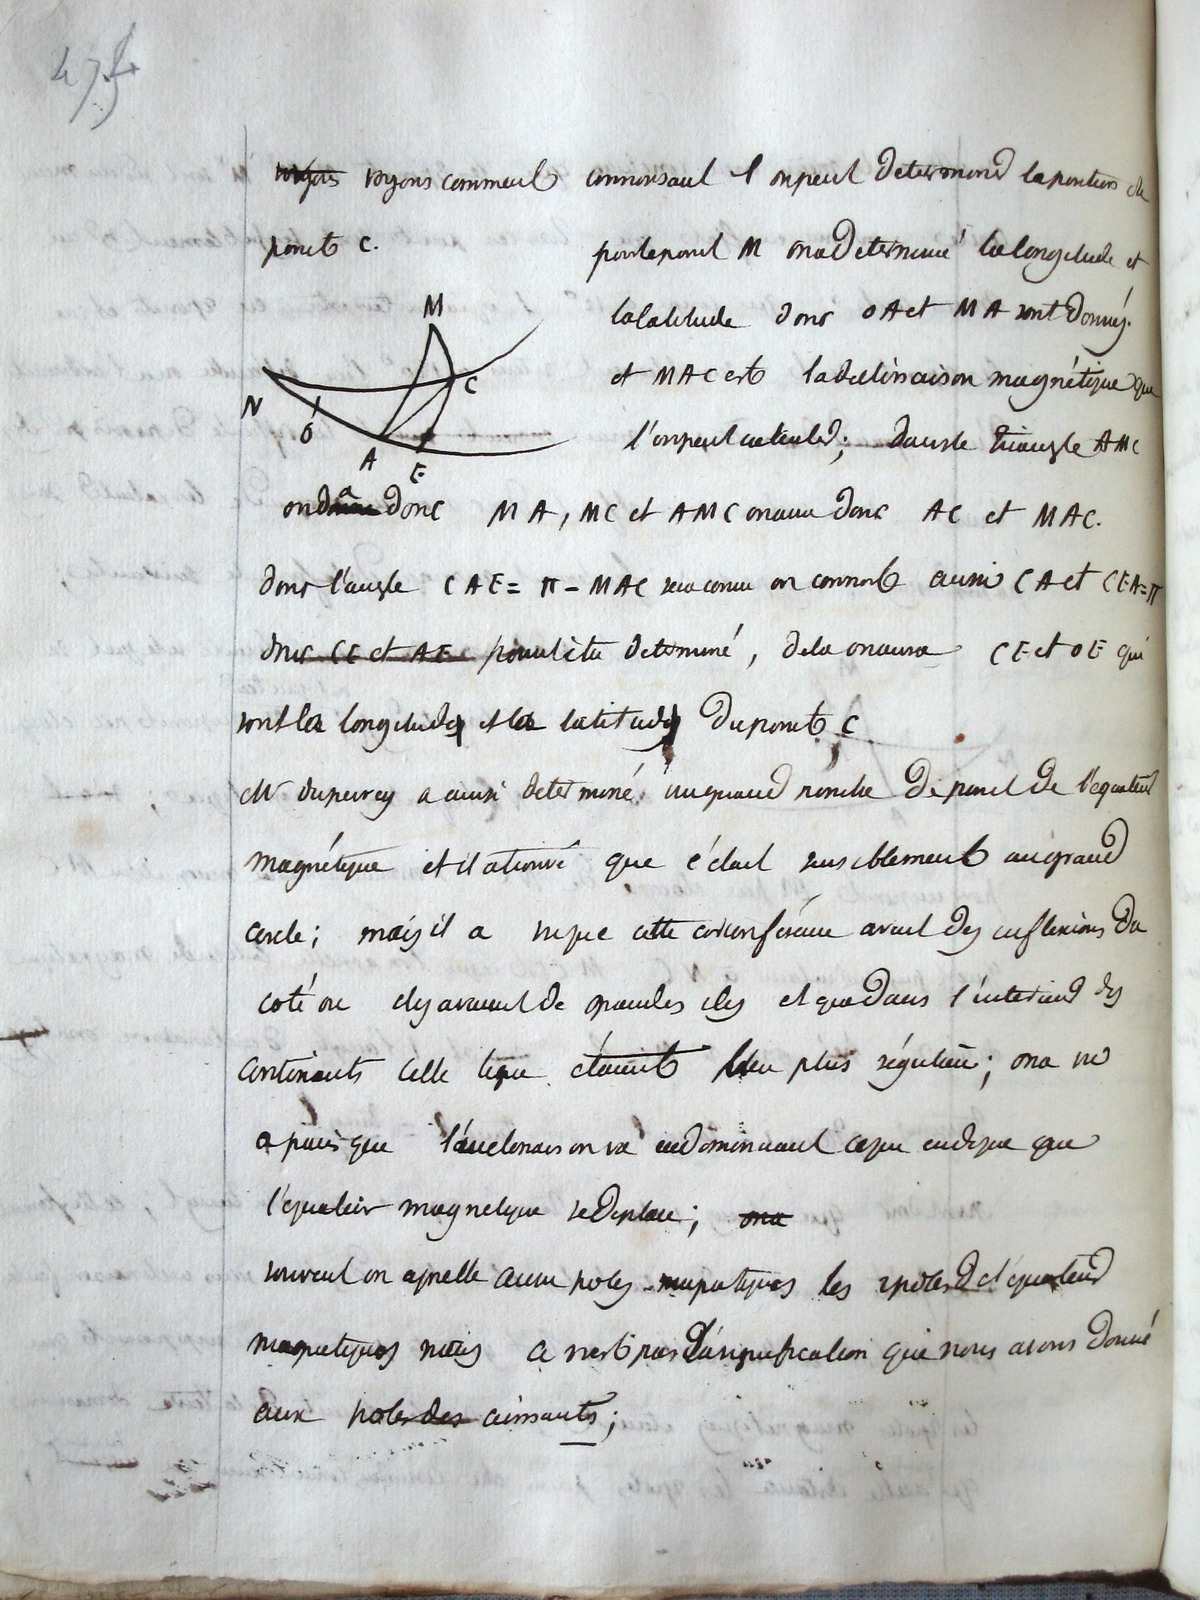 voyons comment connoissant l on peut determiner la position du
point C.
pour le point M on a determiné la longitude et
la latitude donc OA et MA sont donnés.
et MAC est la déclinaison magnétique que
l'on peut calculer; dans le triangle AMC
M
N
O
A
E
C
on a donc MA, MC et AMC on aura donc AC et MAC.
donc l'angle CAE = π - MAC sera connu on connoit aussi CA et CEA = π
donc CE et AE peuvent être determiné, de la on aura CE et OE qui
sont la longitude et la latitude du point C
Mr Duperrey a aussi determiné un grand nombre de point de l'équateur
magnétique et il a trouvé que c'était sensiblement un grand
cercle; mais il a vu que cette circonférence avait des inflexions du
coté ou il y avaient de grandes iles et que dans l'interieur des
continents cette ligne étaient bien plus régulière; on a vu
apuis que l'inclinaison va en diminuant ce qui indique que
l'equateur magnetique se deplace; ona
souvent on appelle aussi poles magnetiques les poles de l'equateur
magnetiques mais ce n'est pas la signification que nous avons donné
aux poles des aimants;